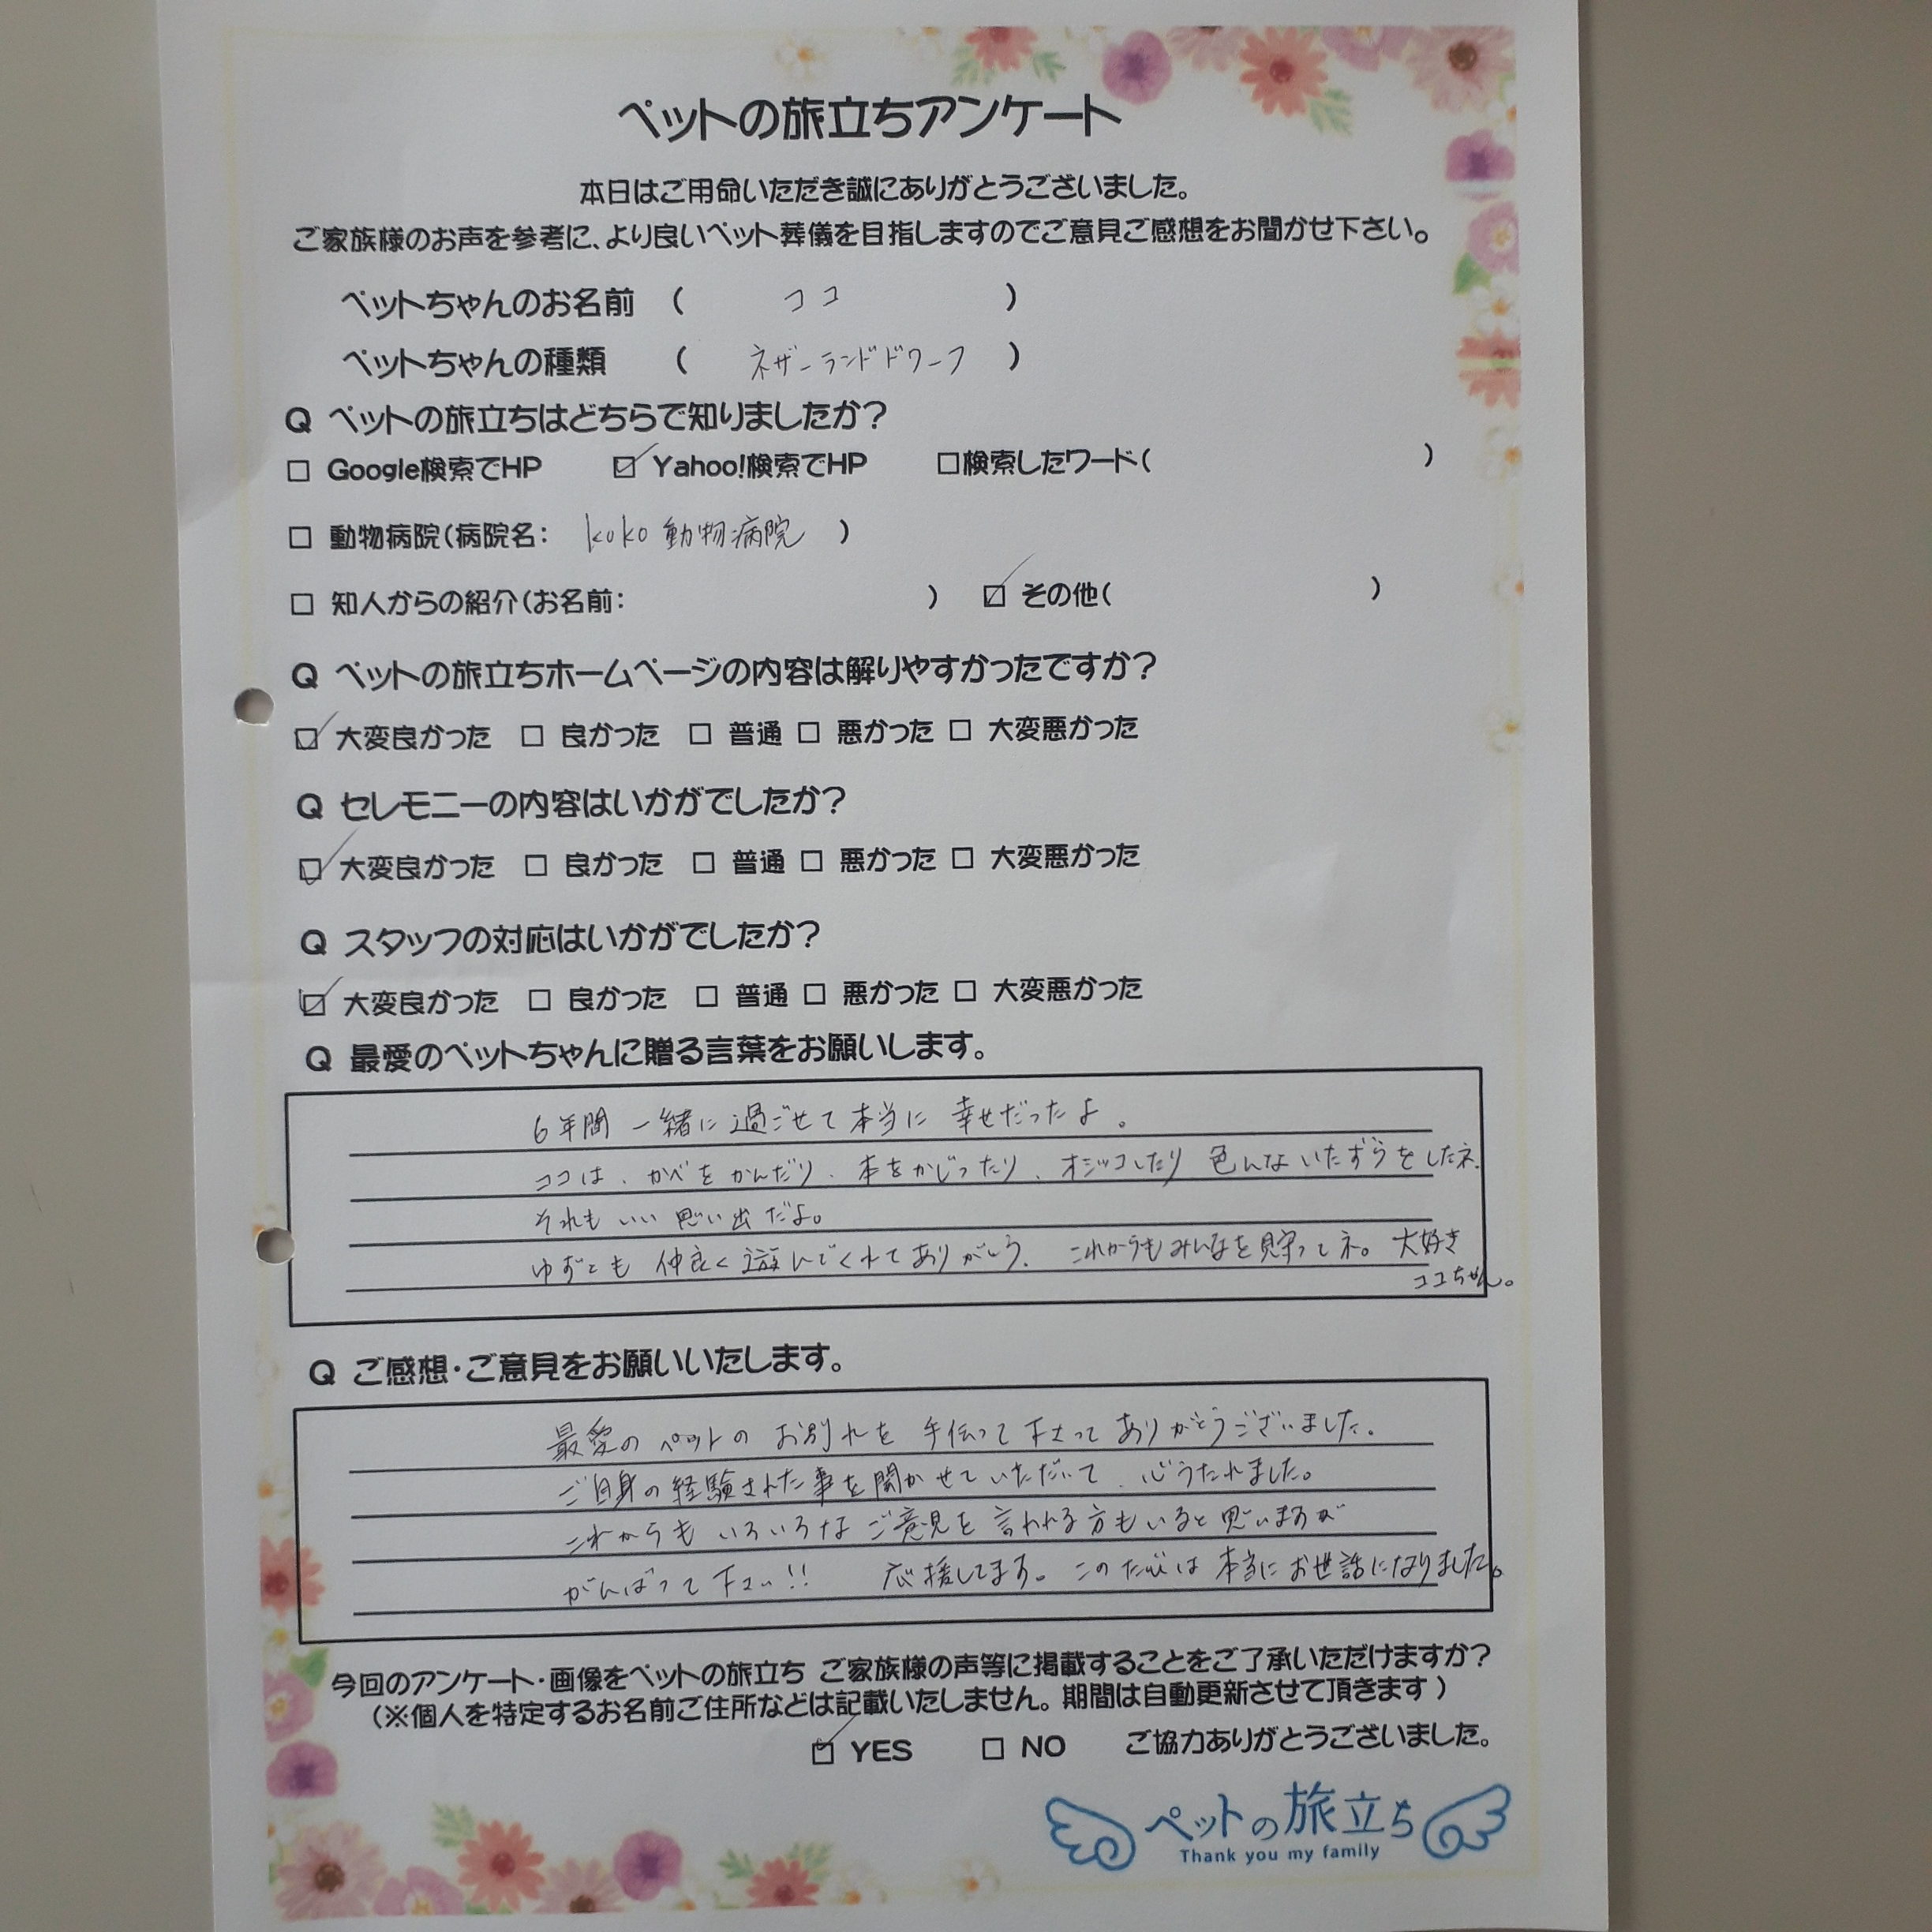 ペットの旅立ちアンケート
本日はご用命いただき誠にありがとうございました。
ご家族様のお声を参考に、より良いペット葬儀を目指しますのでご意見ご感想をお聞かせ下さい。
ペットちゃんのお名前 ( ココ )
ペットちゃんの種類 ( ネザーランドドワーフ )
Q ペットの旅立ちはどちらで知りましたか?
□ Google検索でHP ☑ Yahoo!検索でHP □検索したワード( )
□ 動物病院(病院名: koko 動物病院 )
□ 知人からの紹介(お名前: ) ☑ その他( )
Q ペットの旅立ちホームページの内容は解りやすかったですか?
☑ 大変良かった □ 良かった □ 普通 □ 悪かった □ 大変悪かった
Q セレモニーの内容はいかがでしたか?
☑ 大変良かった □ 良かった □ 普通 □ 悪かった □ 大変悪かった
Q スタッフの対応はいかがでしたか?
☑ 大変良かった □ 良かった □ 普通 □ 悪かった □ 大変悪かった
Q 最愛のペットちゃんに贈る言葉をお願いします。
6年間 一緒に過ごせて本当に幸せだったよ。
ココは、かべをかんだり、本をかじったり、オシッコしたり 色んないたずらをしたネ。
それもいい思い出だよ。
ゆずとも 仲良く遊んでくれてありがとう。 これからもみんなを見守ってネ。 大好き
ココちゃん。
Q ご感想・ご意見をお願いいたします。
最愛のペットのお別れを手伝って下さってありがとうございました。
ご自身の経験された事を聞かせていただいて、心うたれました。
これからもいろいろなご意見を言われる方もいると思いますが
がんばって下さい!! 応援してます。このたびは本当にお世話になりました。
今回のアンケート・画像をペットの旅立ち ご家族様の声等に掲載することをご了承いただけますか?
(※個人を特定するお名前ご住所などは記載いたしません。期間は自動更新させて頂きます)
☑ YES □ NO ご協力ありがとうございました。
ペットの旅立ち
Thank you my family